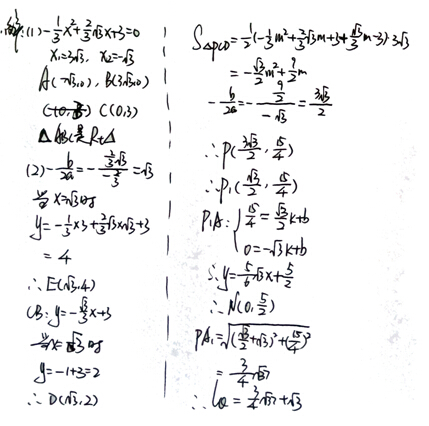 解:(1) -1/3x²+2/3√3x+3=0
x₁=3√3, x₂=-√3
A(-√3,0), B(3√3,0)
C(0,3)
△ABC是Rt△
(2) -b/2a = -(2/3√3)/(-2/3) = √3
当x=√3时
y=-1/3×3+2/3√3×√3+3
=4
∴E(√3,4)
CB: y=-√3/3x+3
当x=√3时
y=-1+3=2
∴D(√3,2)
S△PCD=1/2(-1/3m²+2/3√3m+3+√3/3m-3)·3√3
=-√3/2m²+9/2m
-b/2a=-(9/2)/(-√3)=3√3/2
∴P(3√3/2, 15/4)
∴P₁(√3/2, 15/4)
P₁A: {15/4=√3/2k+b
0=-√3k+b
∴y=5/6√3x+5/2
∴N(0,5/2)
PA₁=√((√3/2+√3)²+(15/4)²)
=3/4√37
∴l=3/4√37+√3